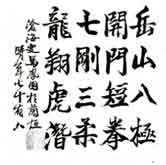 岳山八極
開門短拳
七剛三柔
龍翔虎潛
滄海史馬鳳圖於蘭垣
時年七十有八